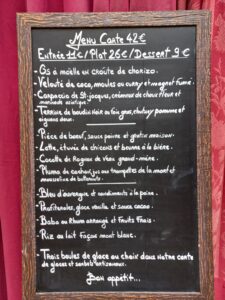 Menu Carte 42€
Entrée 11€ / Plat 26€ / Dessert 9€
- Os à moelle en croûte de chorizo.
- Velouté de coco, moules au curry et magret fumé.
- Carpaccio de St-Jacques, crémeux de chou-fleur et
marinade asiatique
- Terrine de boudin noir au foie gras, chutney pomme et
aigre doux.
- Pièce de boeuf, sauce poivre et gratin maison.
- Lotte, étuvée de chicons et beurre à la bière.
- Cocotte de Rognon de Veau grand-mère.
- Pluma de cochon, jus aux trompettes de la mort et
mousseline de butternuts.
- Bleu d'auvergne et condiments à la poire.
- Profiteroles, glace vanille et sauce cacao.
- Baba au Rhum arrangé et Fruits Frais.
- Riz au lait façon mont blanc.
- Trois boules de glace au choix dans notre carte
de glaces et sorbets artisanaux.
Bon appétit...